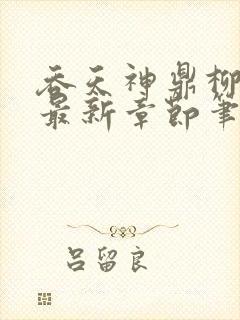 吞天神鼎柳
最新章节笔
吕留良